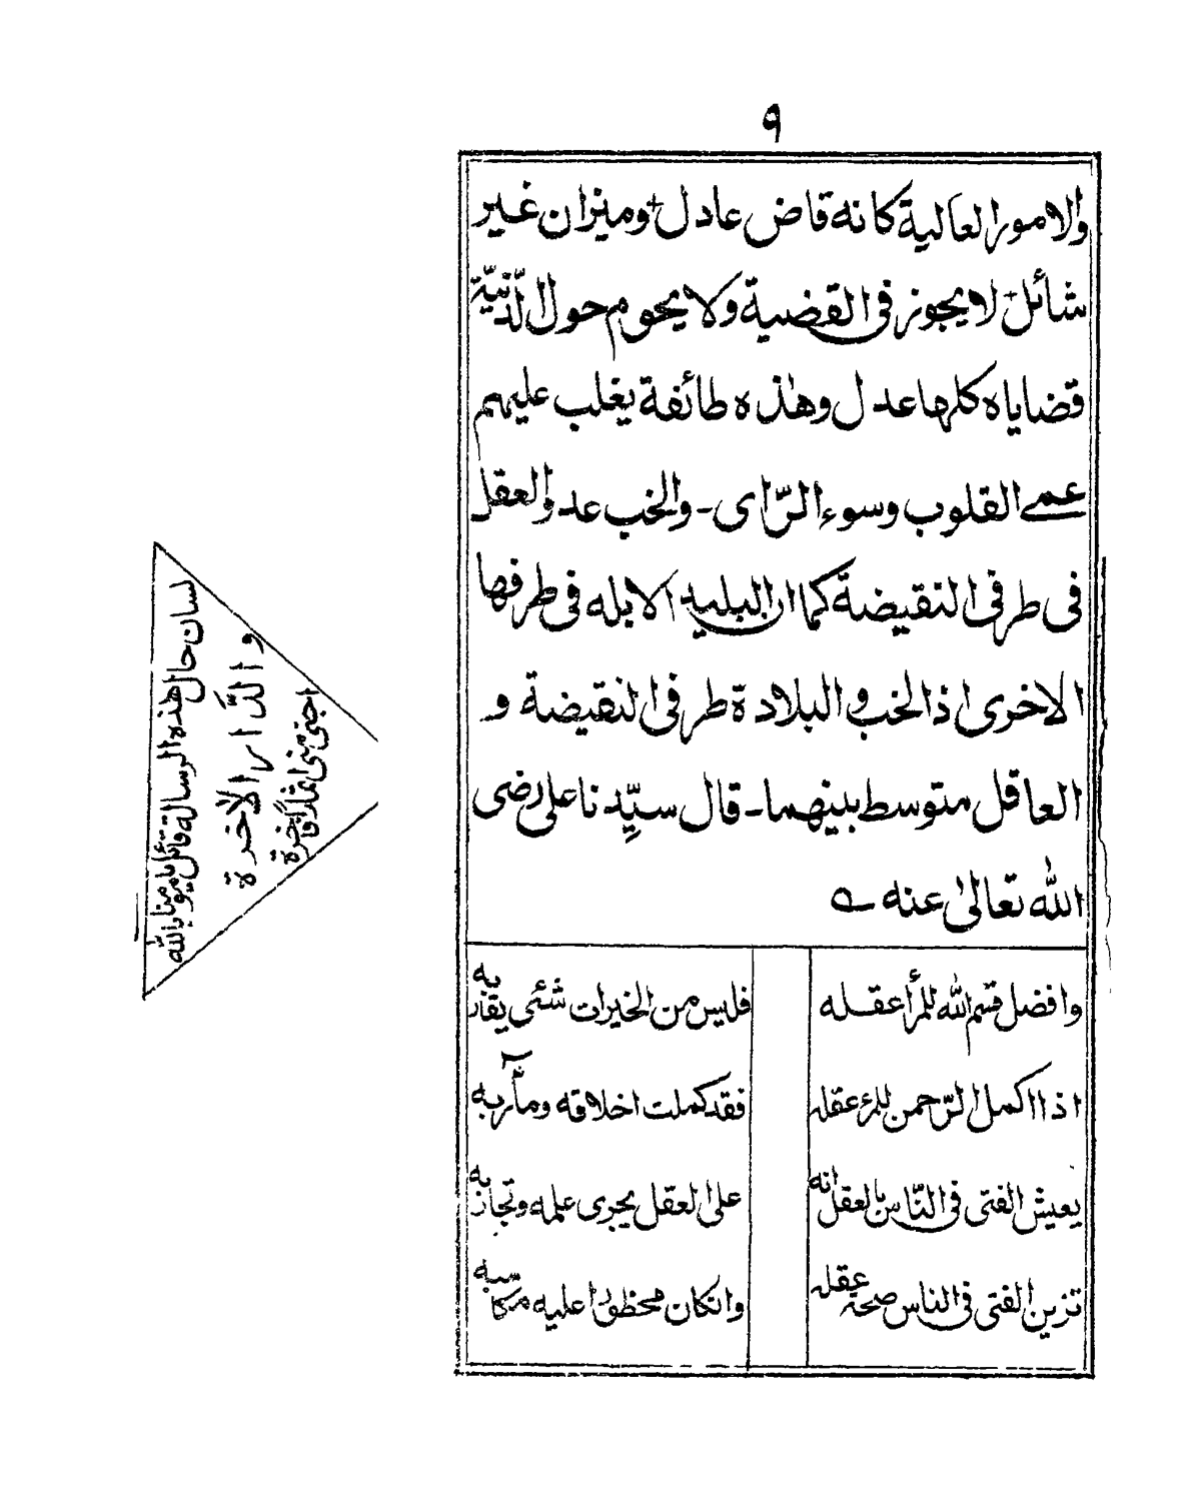 ٩
والامور العالية كانه قاض عادل وميزان غير
شائل لا يجوز فى القضية ولا يحوم حول الدّنيّة
قضاياه كلها عدل وهٰذه طائفة يغلب عليهم
عمے القلوب وسوء الرّاى ـ والخب عد والعقل
فى طرفى النقيضة كما ان البليد الابله فى طرفها
الاخرى اذ الخب و البلادة طرفى النقيضة و
العاقل متوسط بينهما ـ قال سيّدنا على رضى
الله تعالىٰ عنه ؎
وافضل قسم الله للمرأ عقله فليس من الخيرات شئى يقاربه
اذا اكمل الرّحمن للمرء عقله فقد كملت اخلاقه ومآربه
يعيش الفتى فى النّاس بالعقل انه على العقل يجرى علمه وتجاربه
تزين الفتى فى الناس صحة عقله وانكان محظورا عليه مكاسبه
لسان حال هذه الرسالة قائل يا مؤمنا بالله
و الدَّار الاٰخرة
اجتى منى اثمارا فاخرة